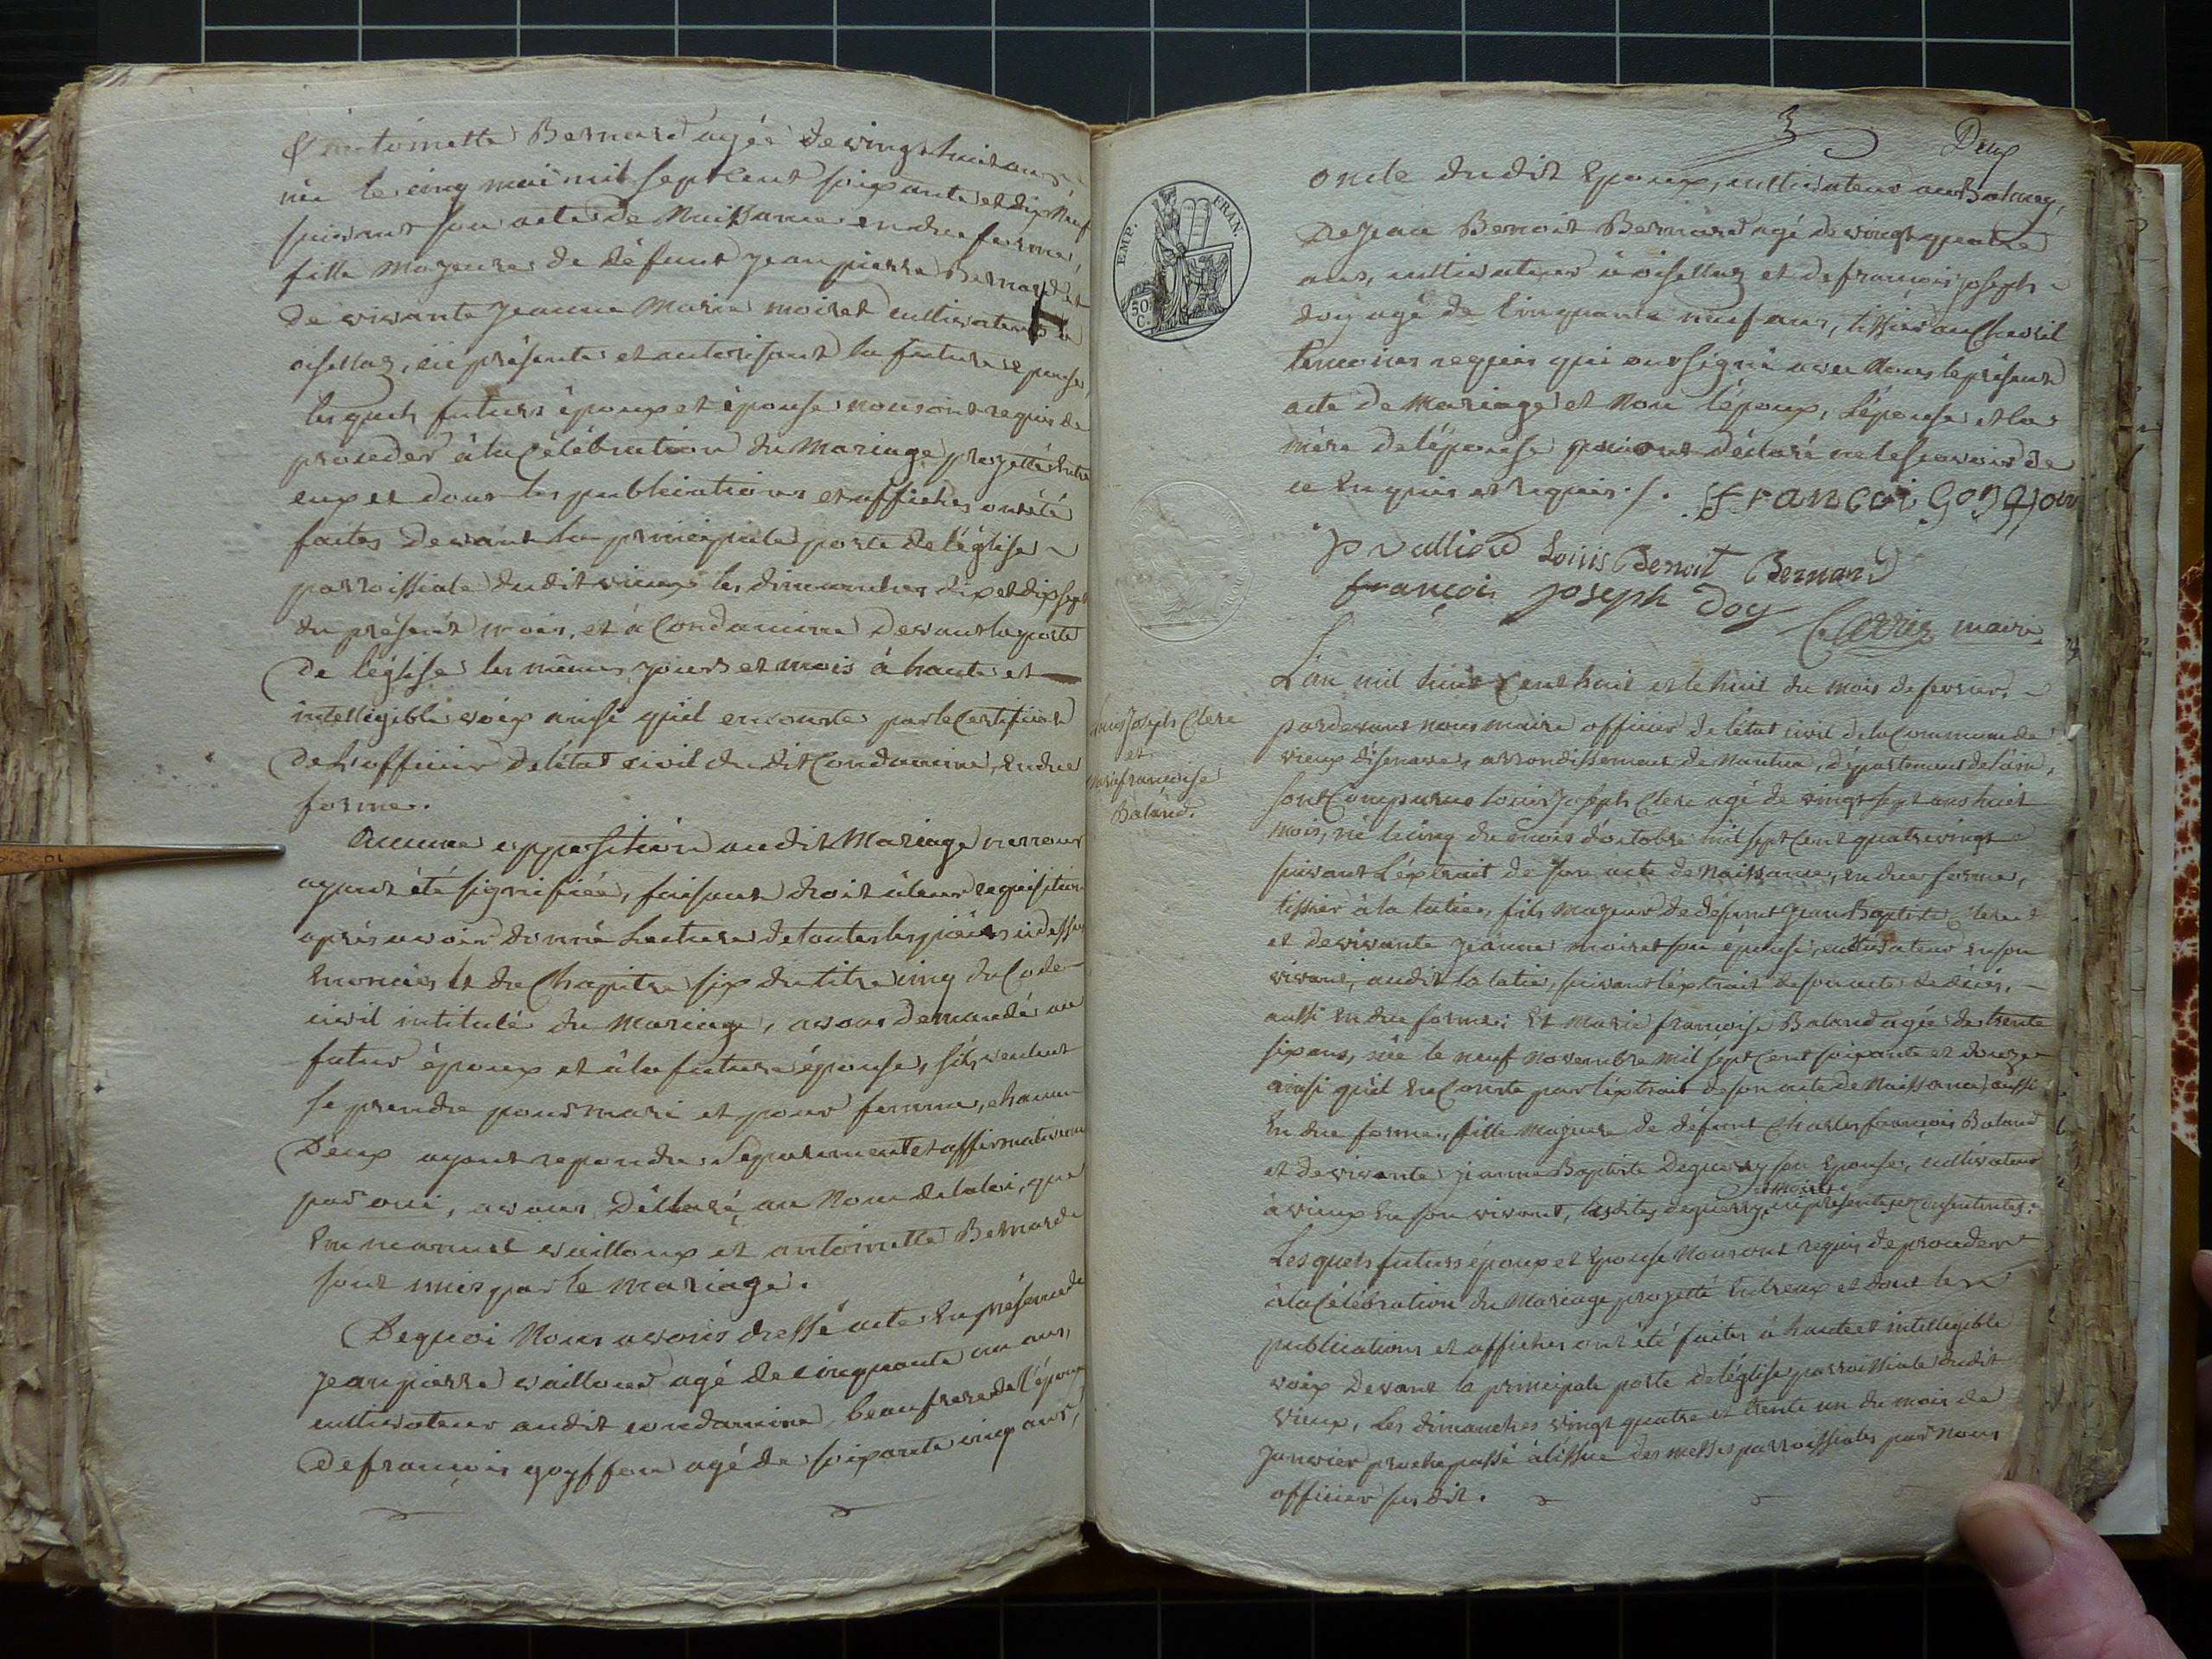 Et antoinette Bernard agée de vingt huit ans
née le cinq mai mil sept cent soixante et dix Neuf
suivant son acte de Naissance en due forme,
fille Majeure de défunt jean pierre Bernard et
de vivante jeanne Marie moiret cultivateurs à
oisellaz, ici présente et autorisant la future epouse,
lesquels futurs époux et épouse nous ont requis de
proceder à la Célébration du Mariage projetté entre
eux et dont les publications et affiches ont été
faites devant la principale porte de l'église
parroissiale dudit vieux les dimanches dix et dix sept
du présent mois, et à Condamine devant la porte
de l'église les mêmes jours et mois à haute et
intelligible voix ainsi qu'il en conste par le Certificat
de L'officier de l'état civil du dit Condamine, en due
forme.
Aucune opposition audit Mariage ne nous
ayant été signifiée, faisant droit à leur requisition
après avoir donné Lecture de toutes les pièces ci dessus
énoncées et du Chapitre six du titre cinq du Code
civil intitulé du Mariage, avons demandé au
futur époux et à la future épouse, s'ils veulent
se prendre pour mari et pour femme, chacun
D'eux ayant repondu séparement et affirmativement
par oui, avons Déclaré au Nom de la loi, que
Emmanuel vailloux et antoinette Bernard
sont unis par le mariage.
De quoi Nous avons dressé acte En présence de
jean pierre vailloud agé de cinquante un ans,
cultivateur audit condamine, beaufrere de l'époux
De françois goyffon agé de soixante cinq ans,
3
Deux
oncle dudit Epoux, cultivateur au Balmey,
De jean Benoit Bernard agé de vingt quatre
ans, cultivateur à oisellaz et de francois joseph
doy agé de Cinquante neuf ans, tissier au Chevril
temoins requis qui ont signé avec Nous le présent
acte de Mariage et Non l'époux, L'épouse et la
mère de l'épouse qui ont déclaré ne le scavoir de
ce Enquis et requis ./.
francoi Goyffon
EMP. FRAN.
50 C.
J P vallioud Louis Benoit Bernard
françois joseph Doy
maire
L'an mil huit Cent huit et le huit du mois de fevrier,
Louis Joseph Clerc
et
Marie francoise
Baland.
pardevant nous maire officier de l'état civil de la Commune de
vieux d'isenave, arrondissement de Nantua, département de l'ain,
sont Comparus Louis Joseph Clerc agé de vingt sept ans huit
mois, né le cinq du mois d'octobre mil sept Cent quatre vingt
suivant L'extrait de son acte de Naissance, en due forme,
tissier à la latie, fils majeur de défunt Jean Baptiste Clerc
et de vivante jeanne moiret son épouse, cultivateur en son
vivant, audit la latie, suivant l'extrait de son acte de décès,
aussi en due forme; Et Marie francoise Baland agée de trente
six ans, née le neuf Novembre mil sept cent soixante et douze
ainsi qu'il en Conste par l'extrait de son acte de Naissance, aussi
en due forme, fille Majeure de défunt Charles francois Baland
et de vivante jeanne Baptiste Deguerry son Epouse, cultivateur
à vieux En son vivant, lesdites deguerry, et moiret ici presentes et Consentantes:
Lesquels futurs époux et Epouse Nous ont requis de proceder
à la Célébration du Mariage projetté Entreux et dont les
publications et affiches ont été faites à haute et intelligible
voix Devant la principale porte de l'église parroissiale dudit
vieux, Les dimanches vingt quatre et trente un du mois de
Janvier proche passé à l'issue des messes parroissiales par Nous
officier susdit.